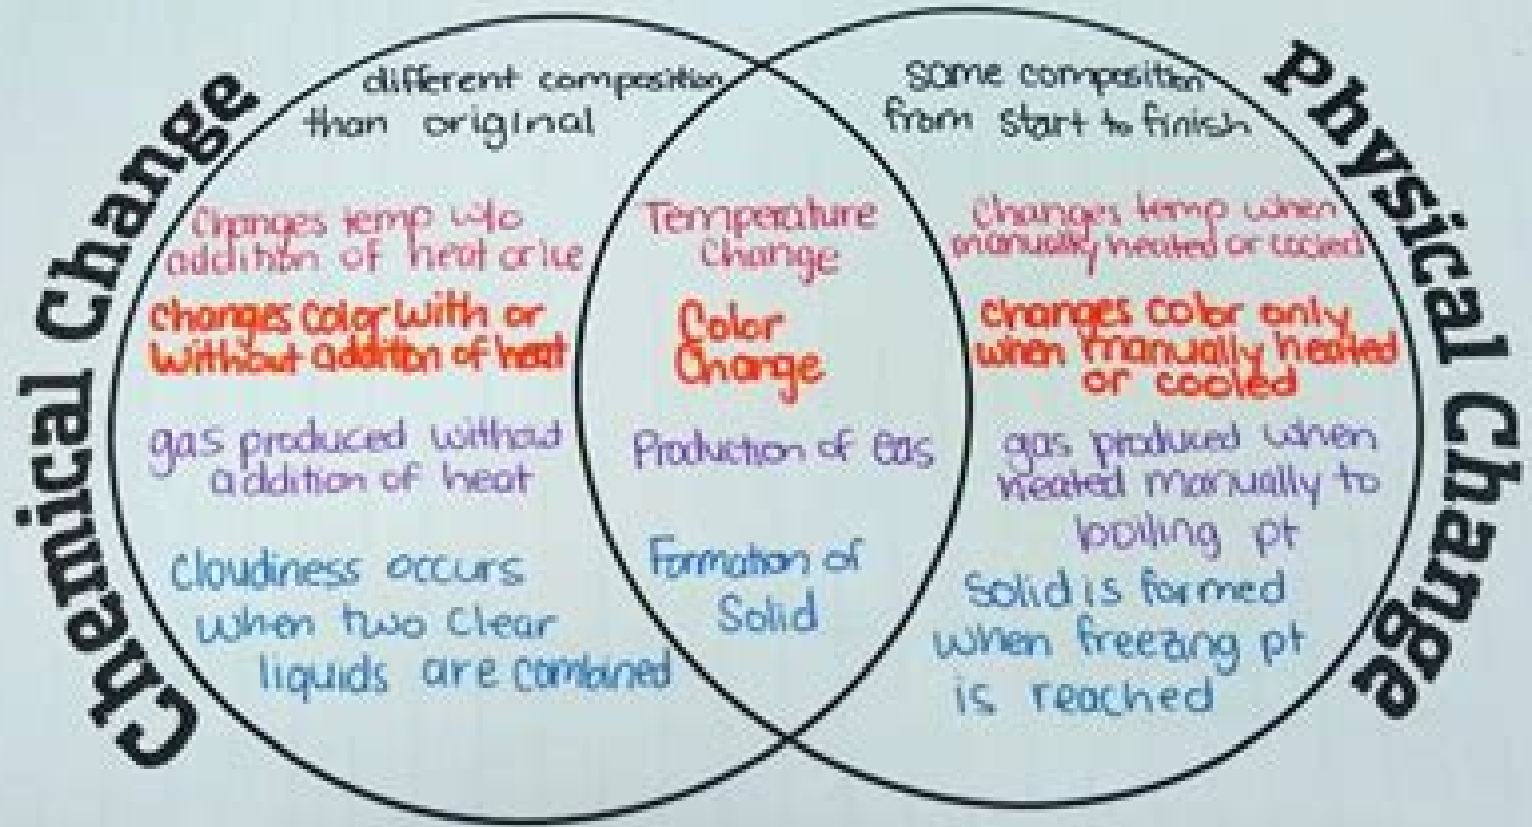 Chemical Change
different composition
than original
Changes temp w/o
addition of heat or ice
changes color with or
without addition of heat
gas produced without
addition of heat
Cloudiness occurs
when two clear
liquids are combined
Temperature
Change
Color
Change
Production of Gas
Formation of
Solid
Physical Change
Same composition
from start to finish
Changes temp when
manually heated or cooled
changes color only
when manually heated
or cooled
gas produced when
heated manually to
boiling pt
Solid is formed
when freezing pt
is reached